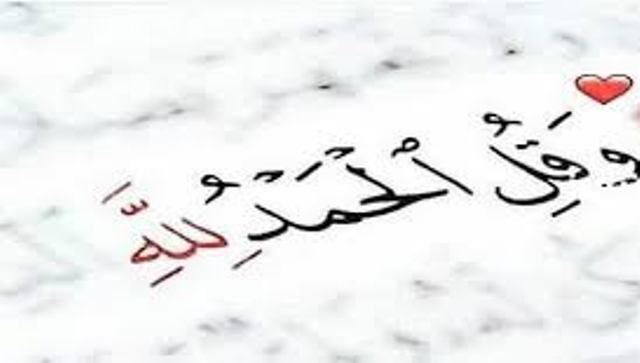 وقل الحمد لله